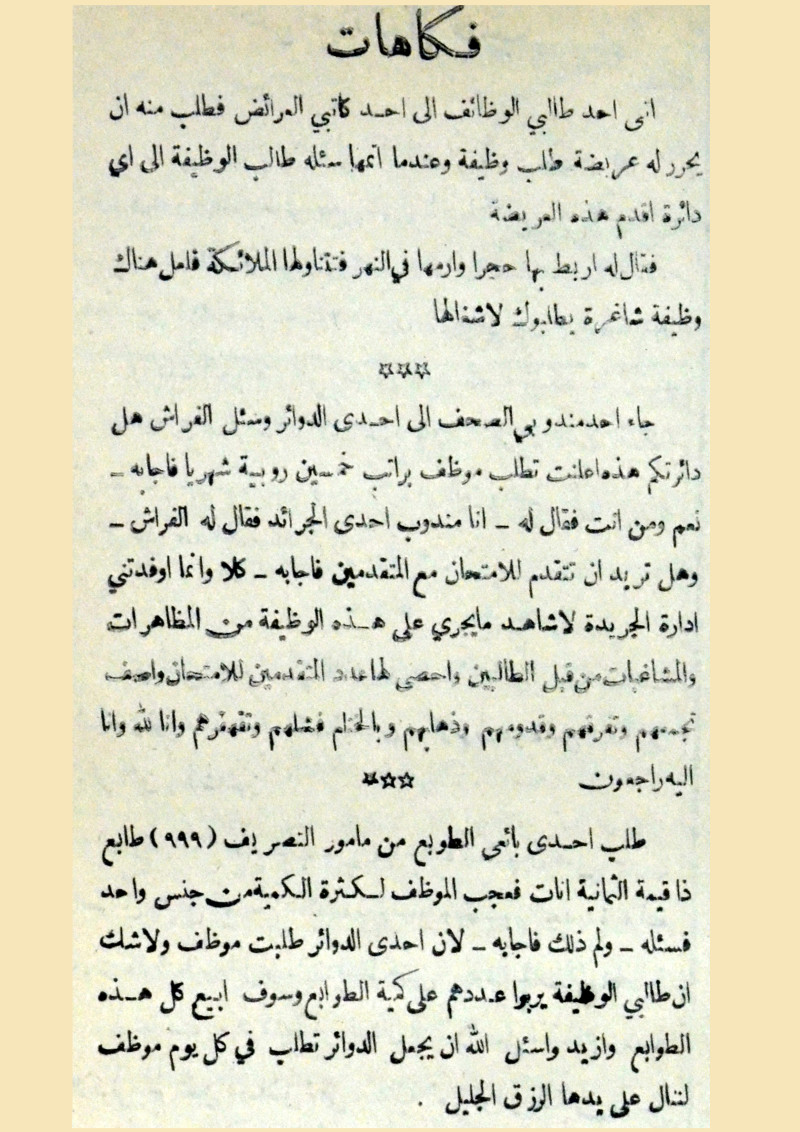 فكاهات
اتى احد طالبي الوظائف الى احد كاتبي العرائض فطلب منه ان
يحرر له عريضة طلب وظيفة وعندما اتمها سئله طالب الوظيفة الى اي
دائرة اقدم هذه العريضة
فقال له اربط بها حجرا وارمها في النهر فتتناولها الملائكة فلعل هناك
وظيفة شاغرة يطلبوك لاشغالها
☆☆☆
جاء احد مندوبي الصحف الى احدى الدوائر وسئل الفراش هل
دائرتكم هذه اعلنت تطلب موظف براتب خمسين روبية شهريا فاجابه ـ
نعم ومن انت فقال له ـ انا مندوب احدى الجرائد فقال له الفراش ـ
وهل تريد ان تتقدم للامتحان مع المتقدمين فاجابه ـ كلا وانما اوفدتني
ادارة الجريدة لاشاهد مايجري على هذه الوظيفة من المظاهرات
والمشاغبات من قبل الطالبين واحصي لها عدد المتقدمين للامتحان واصف
تجمعهم وتفرقهم وقدومهم وذهابهم وبالختام فشلهم وتقهقرهم وانا لله وانا
اليه راجعون
☆☆☆
طلب احدى بائعي الطوبع من مامور التصريف (٩٩٩) طابع
ذا قيمة الثمانية انات فعجب الموظف لكثرة الكمية من جنس واحد
فسئله ـ ولم ذلك فاجابه ـ لان احدى الدوائر طلبت موظف ولاشك
ان طالبي الوظيفة يربوا عددهم على كمية الطوابع وسوف ابيع كل هذه
الطوابع وازيد واسئل الله ان يجعل الدوائر تطلب في كل يوم موظف
لننال على يدها الرزق الجليل .